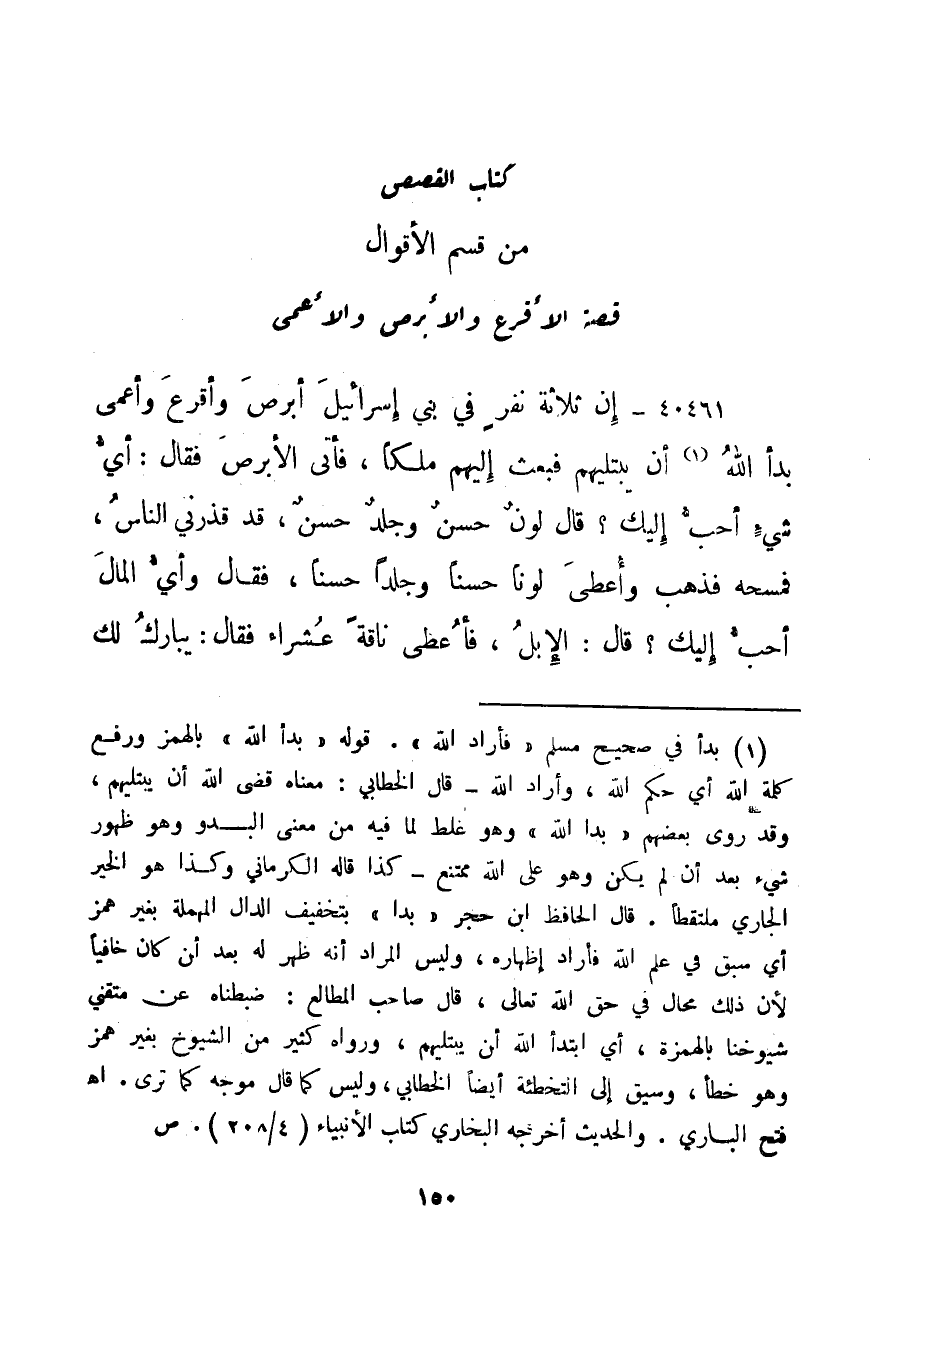 كتاب القصص
من قسم الأقوال
قصة الأقرع والأبرص والأعمى
٤٠٤٦١ - إن ثلاثة نفرٍ في بني إسرائيلَ أبرصَ وأقرعَ وأعمى
بدأ اللهُ (١) أن يبتليهم فبعث إليهم ملكاً ، فأتى الأبرصَ فقال : أيُّ
شيءٍ أحبُّ إليك ؟ قال لونٌ حسنٌ وجلدٌ حسنٌ ، قد قذرني الناسُ ،
فمسحه فذهب وأُعطيَ لونا حسناً وجلداً حسناً ، فقال وأيُّ المالَ
أحبُّ إليك ؟ قال : الإبلُ ، فأُعطى ناقةً عُشراء فقال : يباركُ لك
(١) بدأ في صحيح مسلم « فأراد الله » . قوله « بدأ الله » بالهمز ورفع
كلمة الله أي حكم الله ، وأراد الله - قال الخطابي : معناه قضى الله أن يبتليهم ،
وقد روى بعضهم « بدا الله » وهو غلط لما فيه من معنى البدو وهو ظهور
شيء بعد أن لم يكن وهو على الله ممتنع - كذا قاله الكرماني وكذا هو الخير
الجاري ملتقطاً . قال الحافظ ابن حجر « بدا » بتخفيف الدال المهملة بغير همز
أي سبق في علم الله فأراد إظهاره ، وليس المراد أنه ظهر له بعد أن كان خافياً
لأن ذلك محال في حق الله تعالى ، قال صاحب المطالع : ضبطناه عن متقني
شيوخنا بالهمزة ، أي ابتدأ الله أن يبتليهم ، ورواه كثير من الشيوخ بغير همز
وهو خطأ ، وسبق إلى التخطئة أيضاً الخطابي ، وليس كما قال موجه كما ترى . اه
فتح الباري . والحديث أخرجه البخاري كتاب الأنبياء ( ٢٠٨/٤ ) . ص
١٥٠